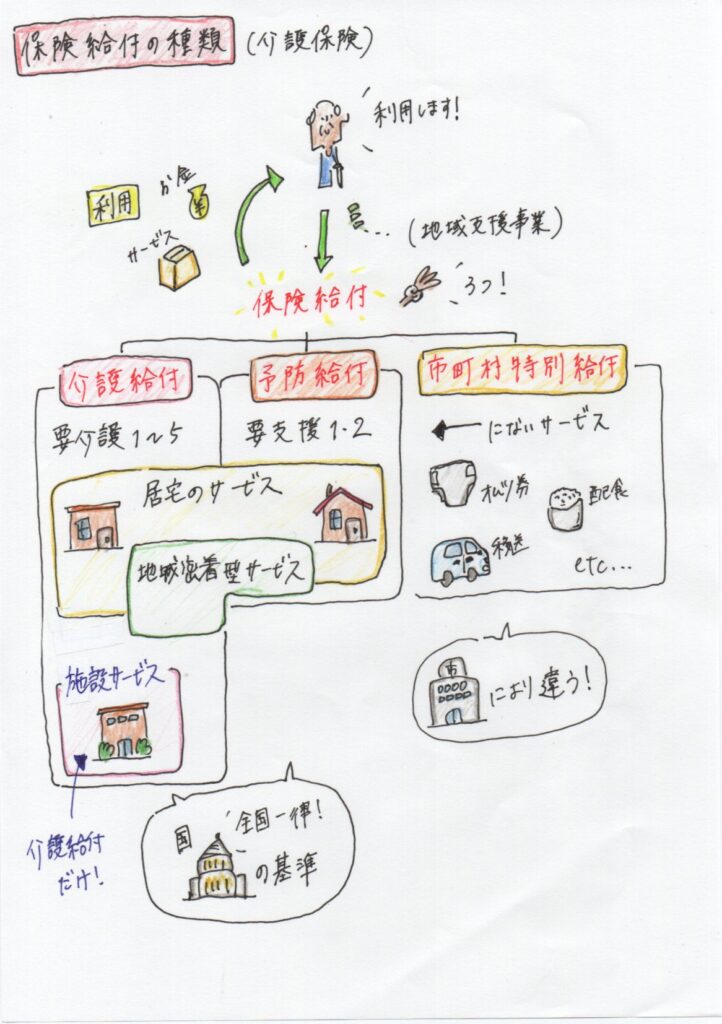 保険給付の種類 (介護保険)
利用します!
お金
利用
サービス
(地域支援事業)
保険給付
3つ!
介護給付
予防給付
市町村特別給付
要介護1~5
要支援1・2
← にないサービス
居宅のサービス
オムツ券
配食
移送
etc...
地域密着型サービス
施設サービス
市
により違う!
介護給付
だけ!
国
全国一律!
の基準